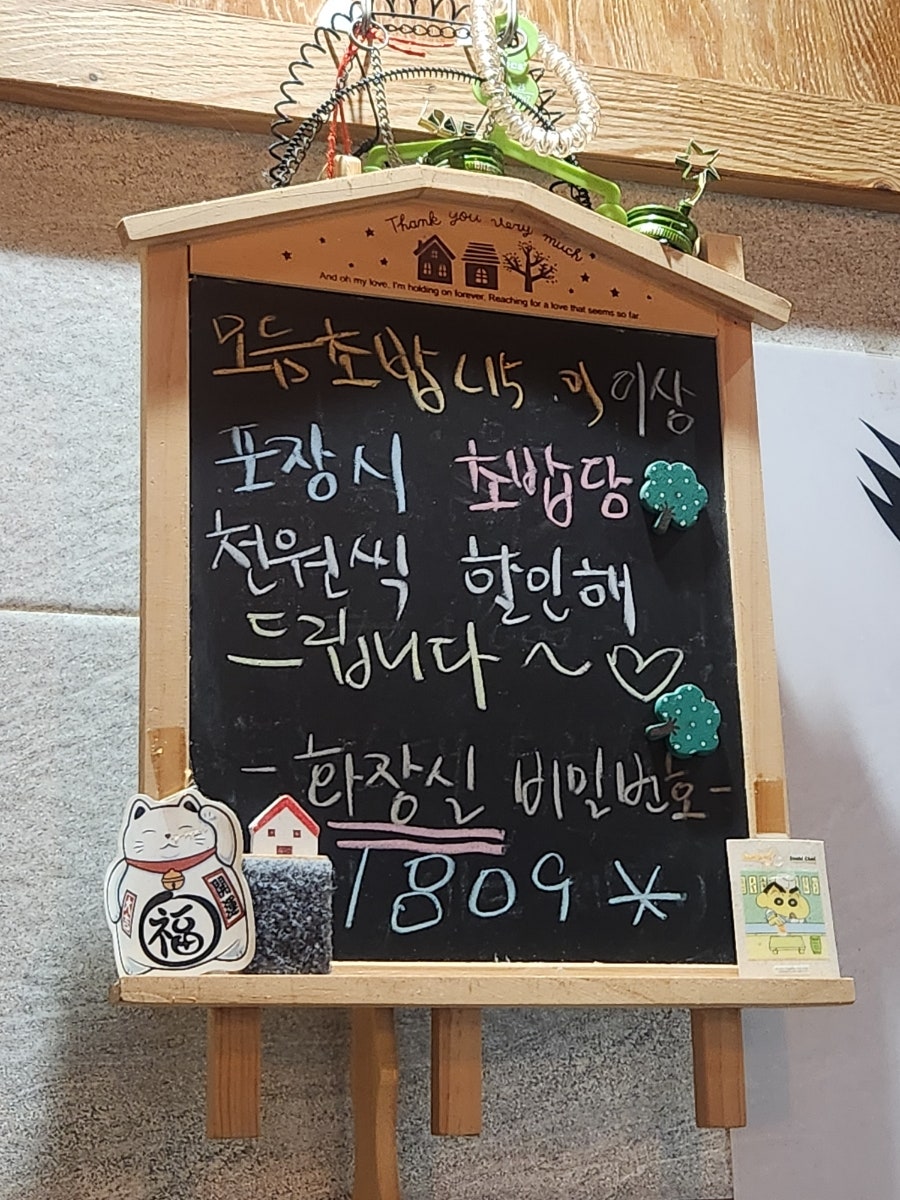 Thank you very much
And oh my love. I'm holding on forever. Reaching for a love that seems so far.
모듬초밥 (15 .0) 이상
포장시 초밥당
천원씩 할인해
드립니다 ~ ♡
- 화장실 비밀번호 -
1809 *
福